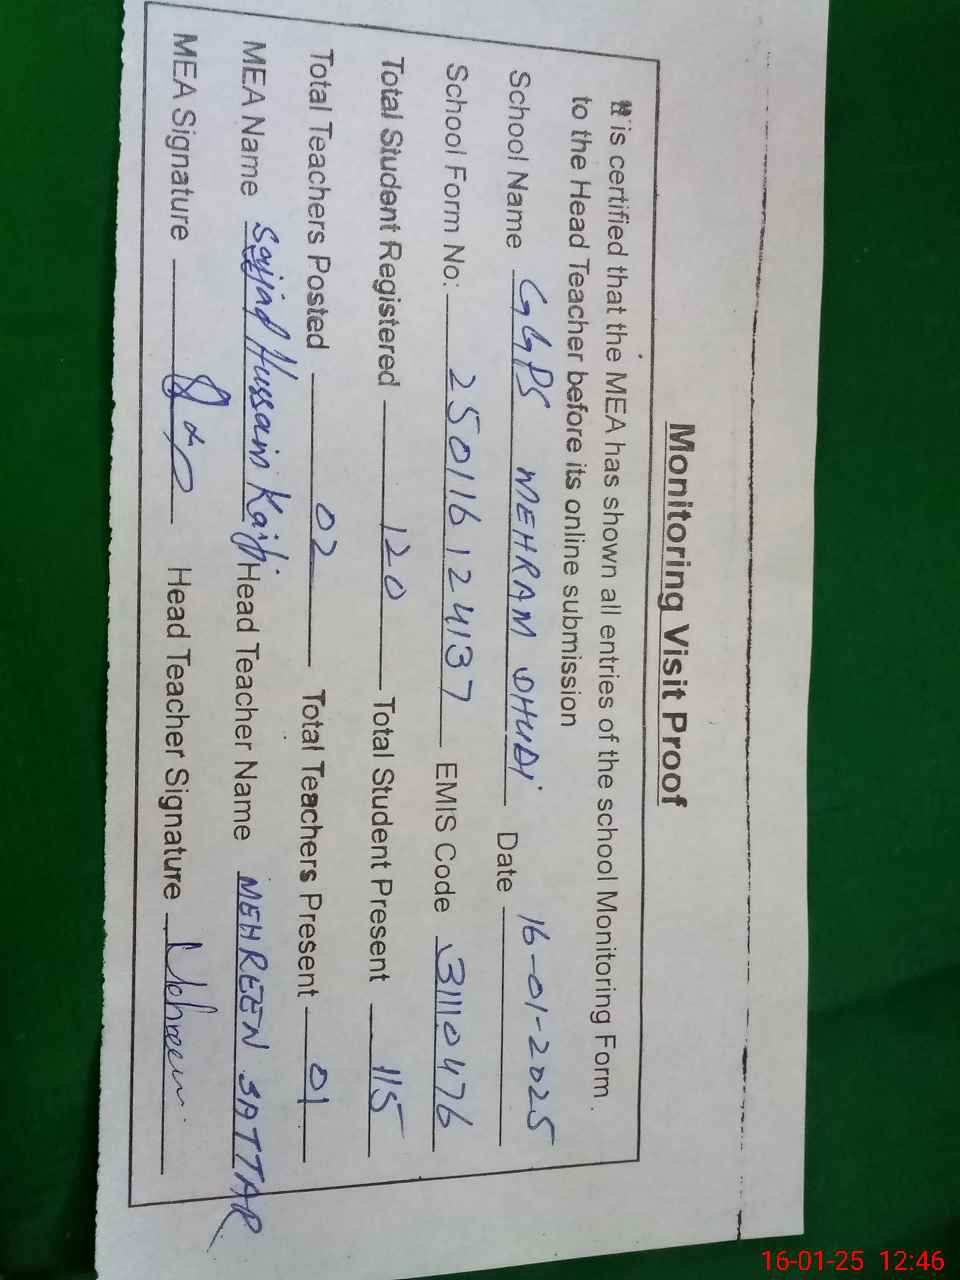 Monitoring Visit Proof
It is certified that the MEA has shown all entries of the school Monitoring Form
to the Head Teacher before its online submission
School Name GGPS MEHRAM DHUDI Date 16-01-2025
School Form No: 250116124137 EMIS Code 31110476
Total Student Registered 120 Total Student Present 115
Total Teachers Posted 02 Total Teachers Present 01
MEA Name Sajjad Hussain Head Teacher Name MEHREEN SATTAR
MEA Signature Head Teacher Signature Mehreen
16-01-25 12:46